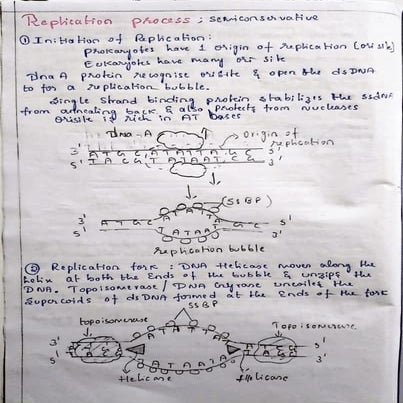 Replication process : semiconservative
① Initiation of Replication :
Prokaryotes have 1 origin of replication (ori site)
Eukaryotes have many ori site
Dna A protein recognise orisite & open the dsDNA
to for a replication bubble.
Single strand binding protein stabilizes the ssdna
from annealing back & also protects from nucleases
orisite is rich in AT bases
dna-A
origin of
replication
3'
5'
(SSBP)
3'
5'
5'
3'
replication bubble
② Replication fork : DNA Helicase moves along the
helix at both the Ends of the bubble & unzips the
DNA. Topoisomerase / DNA Gyrase uncoiles the
supercoils of dsDNA formed at the Ends of the fork
SSBP
topoisomerase
Topoisomerase
3'
5'
3'
5'
Helicase
Helicase